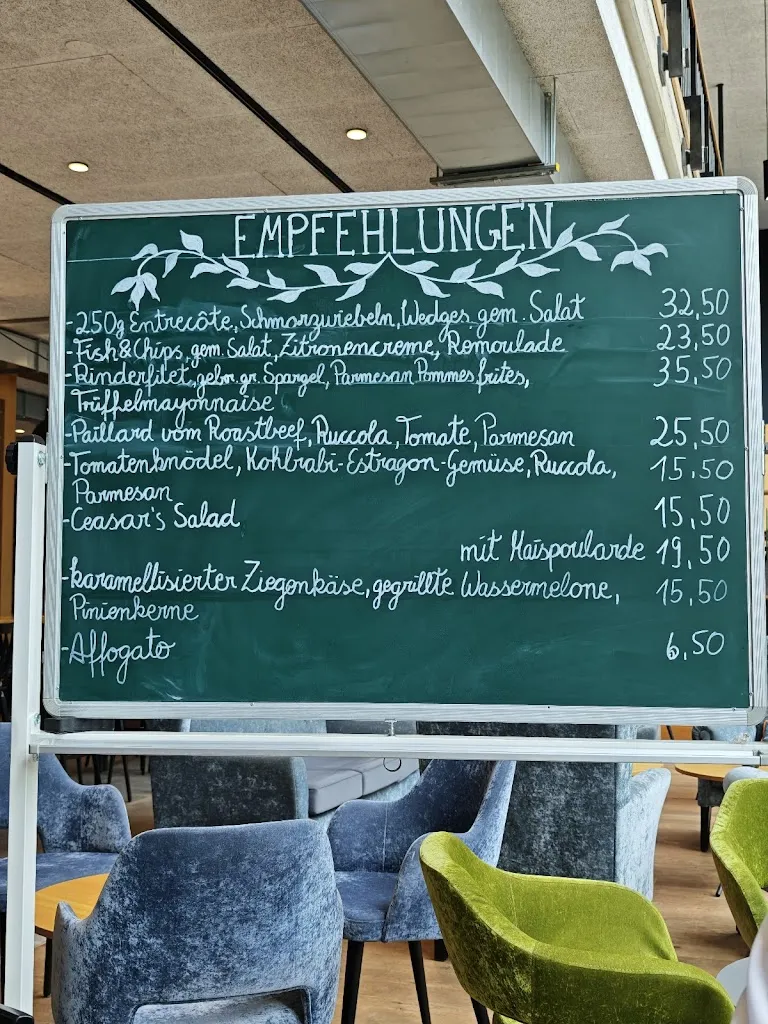 EMPFEHLUNGEN
-250g Entrecôte, Schmorzwiebeln, Wedges, gem. Salat 32,50
-Fish&Chips, gem. Salat, Zitronencreme, Remoulade 23,50
-Rinderfilet, gebr. gr. Spargel, Parmesan Pommes frites, 35,50
Trüffelmayonnaise
-Paillard vom Roastbeef, Ruccola, Tomate, Parmesan 25,50
-Tomatenknödel, Kohlrabi-Estragon-Gemüse, Ruccola, 15,50
Parmesan
-Ceasar's Salad 15,50
mit Maispoularde 19,50
-karamellisierter Ziegenkäse, gegrillte Wassermelone, 15,50
Pinienkerne
-Affogato 6,50